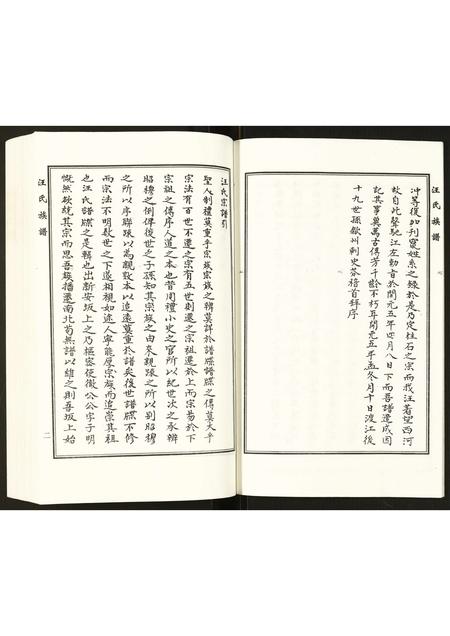 汪氏族譜
冲等復加刊竄姓系之緣於是乃定柱石之宗而我汪著望西河
故自此聲馳江左勅旨於開元五年四月八日下而吾譜遂成因
記其事冀萬古傳芳千齡不朽耳開元五年孟冬月十日渡江後
十九世孫歙州刺史芬稽首拜序
汪氏宗譜引
聖人制禮莫重乎宗族宗族之辨莫詳於譜牒譜牒之傳莫大乎
宗法有百世不遷之宗有五世則遷之宗祖遷於上而宗易於下
宗祖之傳序人道之本也昔周禮小史之官所以紀世次之承辨
昭穆之倒俾後世之子孫知其宗族之由來親疎之所以別昭穆
之所以序聯疎以為親敦本以追遠莫重於譜矣後世譜牒不修
而宗法不明教世之下遂相視如途人寧能厚宗族而追崇其祖
也汪氏譜牒之是輯也出新安坂上之乃樞密使徽公公字子明
慨然欲統其宗而思吾族播遷南北苟無譜以維之則吾坂上始
汪氏族譜
二